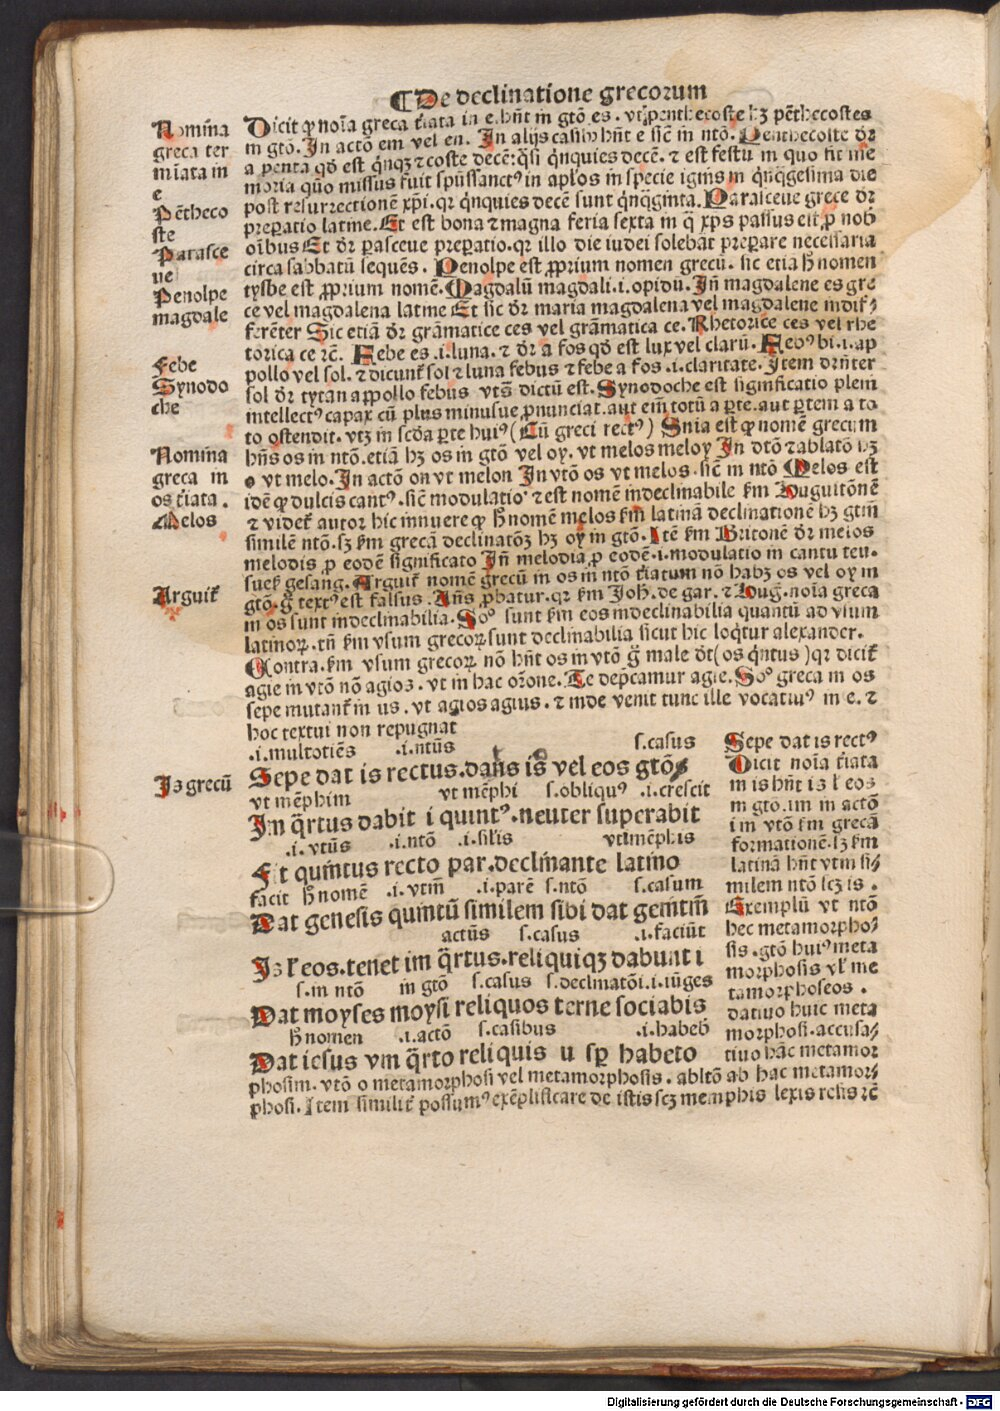 ¶ De declinatione grecorum
Nomīna
greca ter
mīata in
e
Pētheco
ste
Parasce
ue
Penolpe
magdale
Febe
Synodo
che
Nomina
greca in
os tīata .
Melos
Arguit᷑
Iꝫ grecū
Dicit ꝙ noīa greca tīata in e.hn̄t in gtō es. vt pentbecoste hꝫ pēthecostes
in gtō. In actō em vel en. In alijs casibꝰ hn̄t e sic̄ in ntō. Pentbecoste dr̄
a penta qd̄ est q̇nqꝫ ⁊ coste decē: q̄si q̇nquies decē. ⁊ est festū in quo fit me
moria quō missus fuit spūssanctꝰ in aplōs in specie ignis in q̇nq̄gesima die
post resurrectionē xp̄i. qr q̇nquies decē sunt q̇nq̄ginta. Parasceue grece dr̄
preꝑatio latine. Et est bona ⁊ magna feria sexta in q̄ xp̄s passus est ꝓ nob̄
oībus Et dr̄ pasceue preꝑatio. qr illo die iudei solebāt preꝑare necessaria
circa sabbatū sequēs. Penolpe est ꝓprium nomen grecū. sic etiā h̄ nomen
tysbe est ꝓprium nomē. Magdalū magdali .i. opidū. In̄ magdalene es gre
ce vel magdalena latine Et sic dr̄ maria magdalena vel magdalene indif⸗
ferēter Sic etiā dr̄ grāmatice ces vel grāmatica ce. Rhetorice ces vel rhe
torica ce rc̄. Febe es .i. luna. ⁊ dr̄ a fos qd̄ est lux vel clarū. Febꝰ bi .i. ap
pollo vel sol. ⁊ dicunt᷑ sol ⁊ luna febus ⁊ febe a fos .i. claritate. Item drn̄ter
sol dr̄ tytan appollo febus vts̄ dictū est. Synodoche est significatio plem
intellectꝰ capax cū plus minusue ꝓnunciat. aut em̄ totū a ꝑte. aut ꝑtem a to
to ostendit. vtꝫ in scd̄a ꝑte huiꝰ (Cū greci rectꝰ) Snīa est ꝙ nomē grecum
hn̄s os in ntō. etiā hꝫ os in gtō vel oy. vt melos meloy In dtō ⁊ ablatō hꝫ
o vt melo. In actō on vt melon In vtō os vt melos. sic̄ in ntō Melos est
idē ꝙ dulcis cantꝰ. sic̄ modulatio ⁊ est nomē indeclinabile fm̄ Luguitōnē
⁊ videt᷑ autor hic innuere ꝙ h̄ nomē melos fm̄ latinā declinationē hꝫ gtm̄
similē ntō. sꝫ fm̄ grecā declinatōꝫ hꝫ oy in gtō. Itē fm̄ Britonē dr̄ melos
melodis ꝓ eodē significato In̄ melodia ꝓ eodē .i. modulatio in cantu teu-
suek̄ gesang. Arguit᷑ nomē grecū in os in ntō tīatum nō habꝫ os vel oy in
gtō. g̊ textꝰ est falsus. An̄s ꝓbatur. qr fm̄ Joh̄. de gar. ⁊ Luḡ. noīa greca
in os sunt indeclinabilia. Soº sunt fm̄ eos indeclinabilia quantū ad vsum
latinoꝝ. tn̄ fm̄ vsum grecoꝝ sunt declinabilia sicut hic loq̄tur alexander.
Contra. fm̄ vsum grecoꝝ nō hn̄t os in vtō g̊ male dr̄t (os q̇ntus) qr dicit᷑
agie in vtō nō agios. vt in hac orōne. Te dep̄camur agie. Soº greca in os
sepe mutant᷑ in us. vt agios agius. ⁊ inde venit tunc ille vocatiuꝰ in e. ⁊
hoc textui non repugnat
.i.multotiēs .i.ntūs s.casus
Sepe dat is rectus.dans is vel eos gtōs
vt mēphim vt mēphi s.obliquꝰ .i.crescit
Im q̄rtus dabit i quintꝰ.neuter superabit
.i.vtūs .i.ntō .i.silis vtimēphis
Fit quintus recto par.declinante latino
facit h̄ nomē .i.vtm̄ .i.parē s.ntō s.casum
Dat genesis quintū similem sibi dat gemtm̄
actūs s.casus .i.faciūt
Is l̓ eos.tenet im q̄rtus.reliquiqꝫ dabunt i
s.in ntō in gtō s.casus s.declinatōi.i.iūges
Dat moyses moysi reliquos terne sociabis
h̄ nomen .i.actō s.casibus .i.habeb̄
Dat iesus vm q̄rto reliquis u sꝑ habeto
Sepe dat is rectꝰ
Dicit noīa tīata
in is hn̄t is l̓ eos
in gtō. im in actō
i in vtō fm̄ grecā
formationē. sꝫ fm̄
latinā hn̄t vtm si⸗
milem ntō scꝫ is .
Exemplū vt ntō
hec metamorpho⸗
sis. gtō huiꝰ meta
morphosis vl̓ me
tamorphoseos .
datiuo huic meta
morphosi. accusa⸗
tiuo hāc metamor
phosim. vtō o metamorphosi vel metamorphosis. abltō ab hac metamor⸗
phosi. Item similit᷑ possumꝰ exēplificare de istis scꝫ memphis lexis resis rc̄
Digitalisierung gefördert durch die Deutsche Forschungsgemeinschaft - DFG